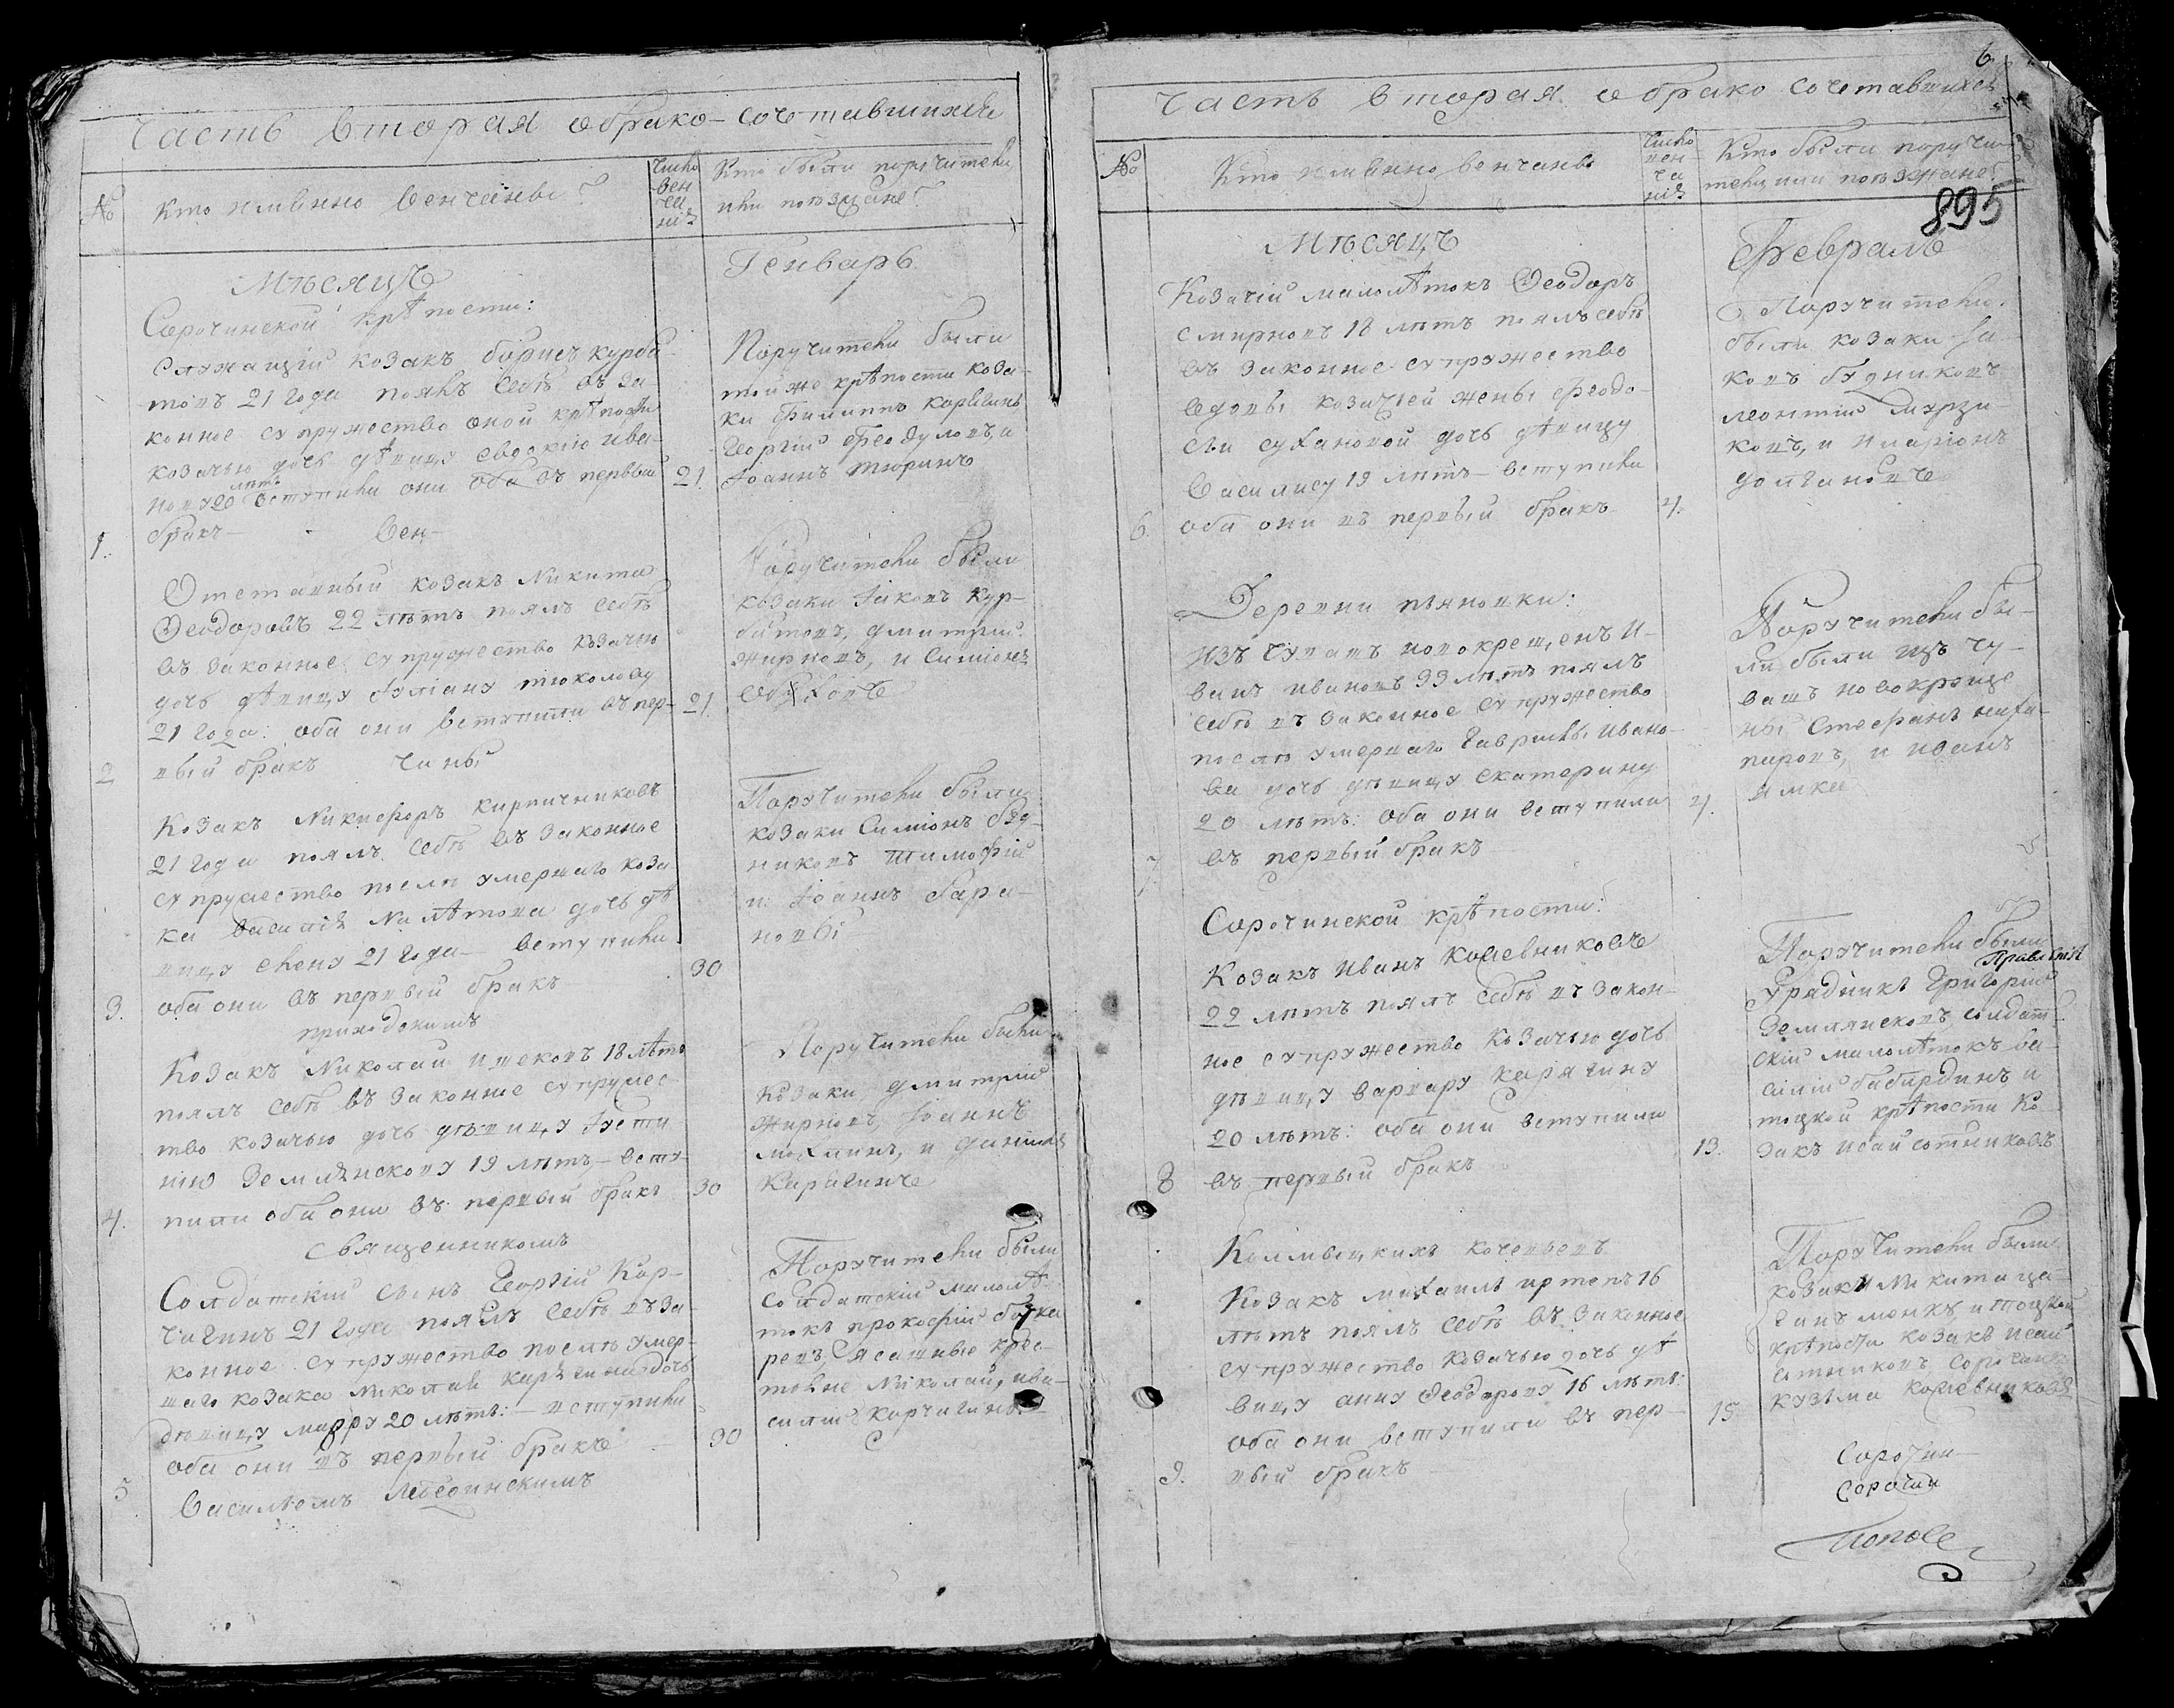 Часть вторая о брако-сочетавшихся
№
Кто имѣнно венчаны?
Число
вен
ча
нія
Кто были поручители,
или поѣзжане?
Мѣсяцъ
Генварь
Сорочинской крѣпости:
Служащій козакъ борисъ курба-
товъ 21 года поялъ себѣ въ за-
конное супружество оной крѣпости
козачью дочь дѣвицу евдокію ива-
нову 20 лѣтъ вступили они оба въ первый
бракъ - вен-
1.
21
Поручители были
той же крѣпости коза-
ки Филиппъ карягинъ
Георгій Феодуловъ, и
Іоаннъ тюринъ
Отставный козакъ Никита
Ѳеодоровъ 22 лѣтъ поялъ себѣ
въ законное супружество козачью
дочь дѣвицу Іуліану
21 года: оба они вступили въ пер-
вый бракъ чаны
2
21
Поручители были
козаки Іаковъ кур-
батовъ, дмитрій
жирновъ, и Симіонъ
Козакъ Никифоръ кирпичниковъ
21 года поялъ себѣ въ законное
супружество послѣ умершаго коза
ка василія дочь дѣ
вицу елену 21 года - вступили
оба они въ первый бракъ
приходскимъ
3.
30
Поручители были
козаки Симіонъ буд-
никовъ тимофій
и Іоаннъ Гара-
новы
Козакъ Николай 18 лѣтъ
поялъ себѣ въ законное супружес-
тво козачью дочь дѣвицу Іусти
нію Землянскову 19 лѣтъ - всту-
пили оба они въ первый бракъ
священникомъ
4.
30
Поручители были
козаки, дмитрій
жирновъ, Іоаннъ
и даніилъ
Карягинъ
Солдатскій сынъ Георгій Кор-
чагинъ 21 года поялъ себѣ въ за-
конное супружество послѣ умер-
шаго козака николая карягина дочь
дѣвицу марѳу 20 лѣтъ: - вступили
оба они въ первый бракъ
Василіемъ Лебединскимъ
5
30
Поручители были
Солдатскій малолѣ-
токъ прокофій
ревъ, Ясашные крес-
тьяне Николай, и ва-
силій Корчагины
6.
Часть вторая о брако сочетавшихся
№
Кто имѣнно венчаны
Число
вен-
ча
нія
Кто были поручи-
тели, или поѣзжане?
895
Мѣсяцъ
Февраль
Козачій малолѣтокъ Ѳеодоръ
смирновъ 18 лѣтъ поялъ себѣ
въ законное супружество
вдовы козачьей жены феодо-
сьи сухановой дочь дѣвицу
Василису 19 лѣтъ - вступили
оба они въ первый бракъ
6.
4.
Поручители
были козаки Іа-
ковъ будниковъ
леонтій мурзи-
ковъ, и иларіонъ
долгановъ
Деревни пьяновки:
Изъ чувашъ новокрещенъ И-
ванъ ивановъ 33 лѣтъ поялъ
себѣ въ законное супружество
послѣ умершаго Гаврилы ивано-
ва дочь дѣвицу екатерину
20 лѣтъ: оба они вступили
въ первый бракъ
7.
4.
Поручители бы-
ли были изъ чу-
вашъ новокреще
ны Стефанъ ника-
норовъ, и иванъ
Сорочинской крѣпости:
Козакъ Иванъ Кожевниковъ
22 лѣтъ поялъ себѣ въ закон-
ное супружество козачью дочь
дѣвицу варвару карягину
20 лѣтъ: оба они вступили
въ первый бракъ
8
13.
Поручители были
Урядникъ Григорій
Землянсковъ, солдат-
скій малолѣтокъ ва-
силій бабардинъ и
тоцкой крѣпости Ко-
закъ исай сотниковъ
Калмыцкихъ
Козакъ михаилъ 16
лѣтъ поялъ себѣ въ законное
супружество козачью дочь дѣ
вицу анну Ѳеодорову 16 лѣтъ:
оба они вступили въ пер-
вый бракъ
9.
15
Поручители были
козаки Никита
и тоцкой
крѣпости козакъ исай
сотниковъ
кузьма Кожевниковъ
Сорочин-
Сорочин
Попов